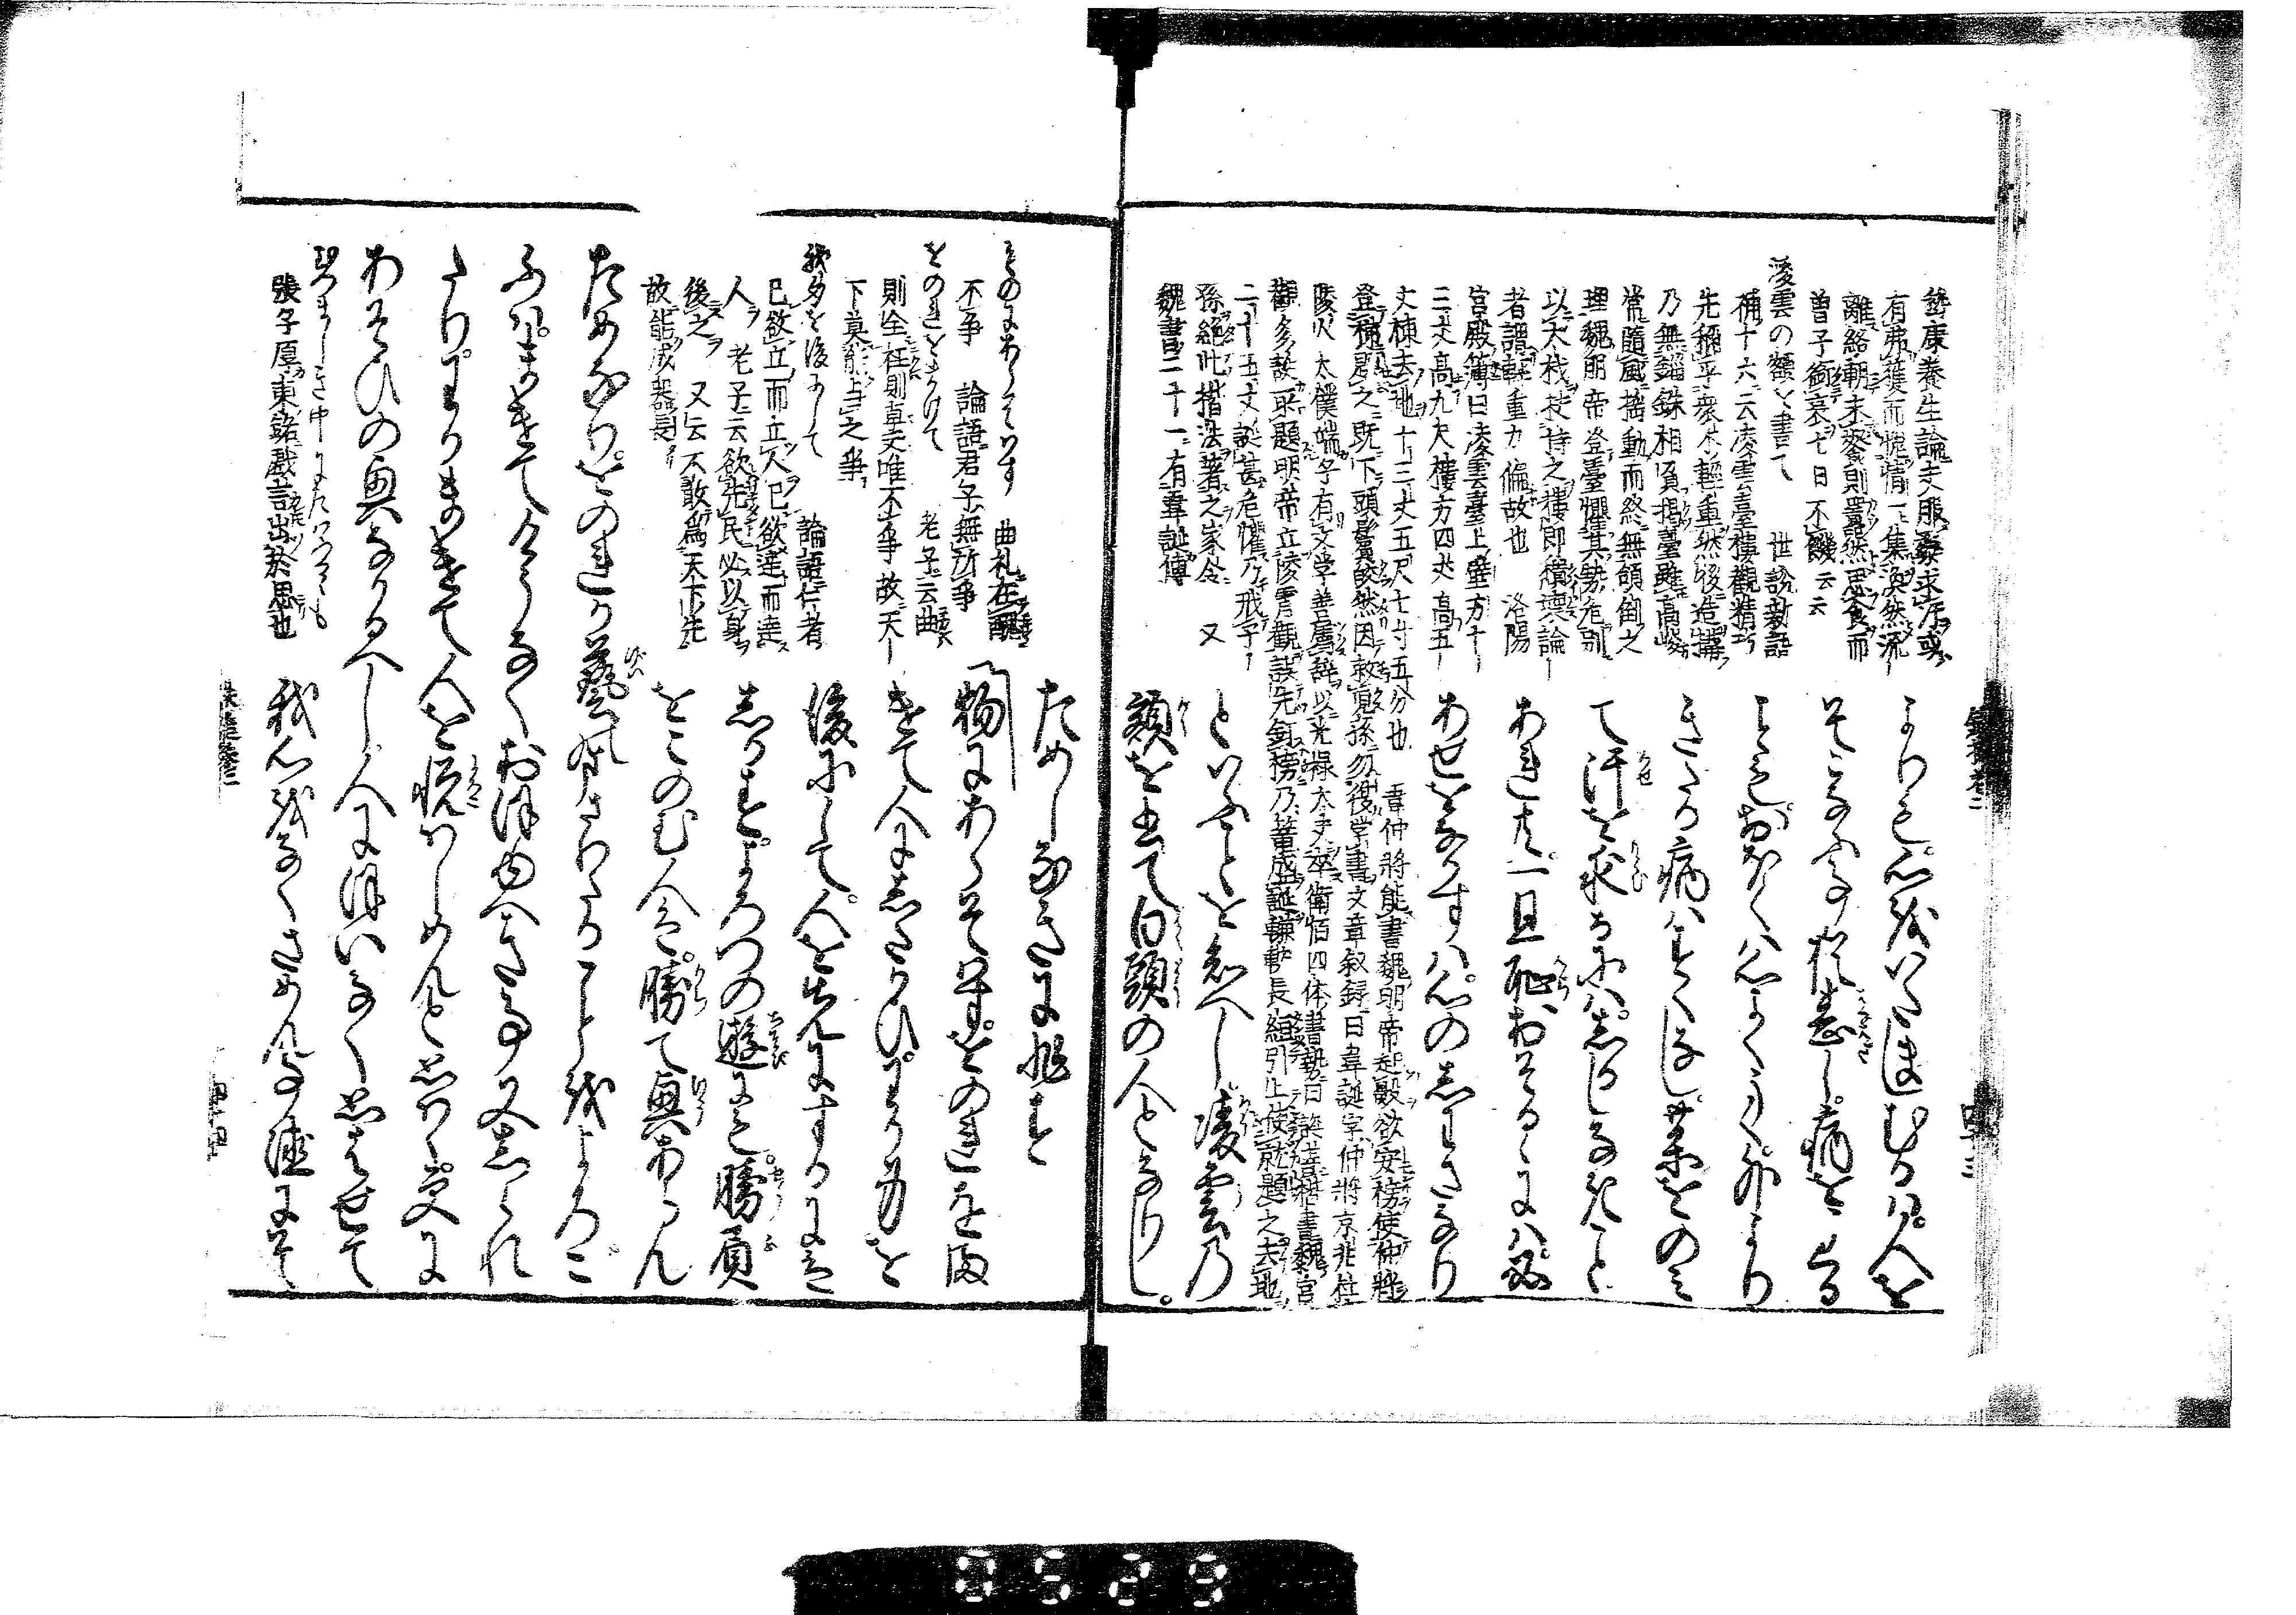 嵆康養生論夫服藥求汗或
有弗獲而愧情一集渙然流
離終朝未餐則囂然思食而
曽子銜哀七日不饑云云
凌雲の額を書て　世説新語
補十六ニ云凌雲臺樓觀精巧
先稱平衆木輕重然後造構
乃無錙銖相負揭臺雖高峻
常隨風搖動而終無傾倒之
理魏明帝登臺懼其勢危別
以大材扶持之樓即頽壞論
者謂輕重力偏故也　洛陽
宮殿簿曰凌雲臺上壁方十
三丈高九尺樓方四丈高五
丈棟去地十三丈五尺七寸五分也　韋仲將能書魏明帝起殿欲安榜使仲將
登梯題之既下頭鬢皓然因敕兒孫勿復学書文章叙録曰韋誕字仲將京兆
陵人太僕端子有文学善属辞以光禄大夫卒衛恒四体書勢曰誕善楷書魏宮
觀多誕所題明帝立陵霄觀誤先釘榜乃篭盛誕轆轤長絙引上使就題之去地
二十五丈誕甚危懼乃戒子
孫絶此楷法著之家令　又
魏書二十一有韋誕傳
よりも。心をいたましむるは。人を
そこなふ事猶甚し。病をうくる
ことも。おほくは心よりうく。外より
きたる病はすくなし。薬をのみ
て汗を求るには。しるしなきこと
あれ共。一旦恥おそるゝには。必
あせをながすは。心のしわざなり
といふことをしるべし。凌雲の
額を書て白頭の人となりし。
ものにあらそはず　曲礼在醜
不爭　論語君子無所爭
をのれをまげて　老子云曲
則全枉則直夫唯不爭故天
下莫能与之爭
我身を後にして　論語仁者
己欲立而立人己欲達而達
人　老子云欲先民必以身
後之　又云不敢爲天下先
故能成器長
ためしなきにあらず
物にあらそはず。をのれをま
げて人にしたがひ。わが身を
後にして。人をさきにするには
しかず。よろづの遊にも。勝負
をこのむ人は。勝て興あらん
ためなり。をのれが藝まさりたることをよろこ
ぶ。されば。まけて興なくおぼゆべき事又しられ
たり。わがまけて人を悦ばしめんと思はゞ。更に
あそびの興なかるべし。人にほいなく思はせて
張子厚東銘戲言出於思也
我心をなぐさめん事徳にそむ